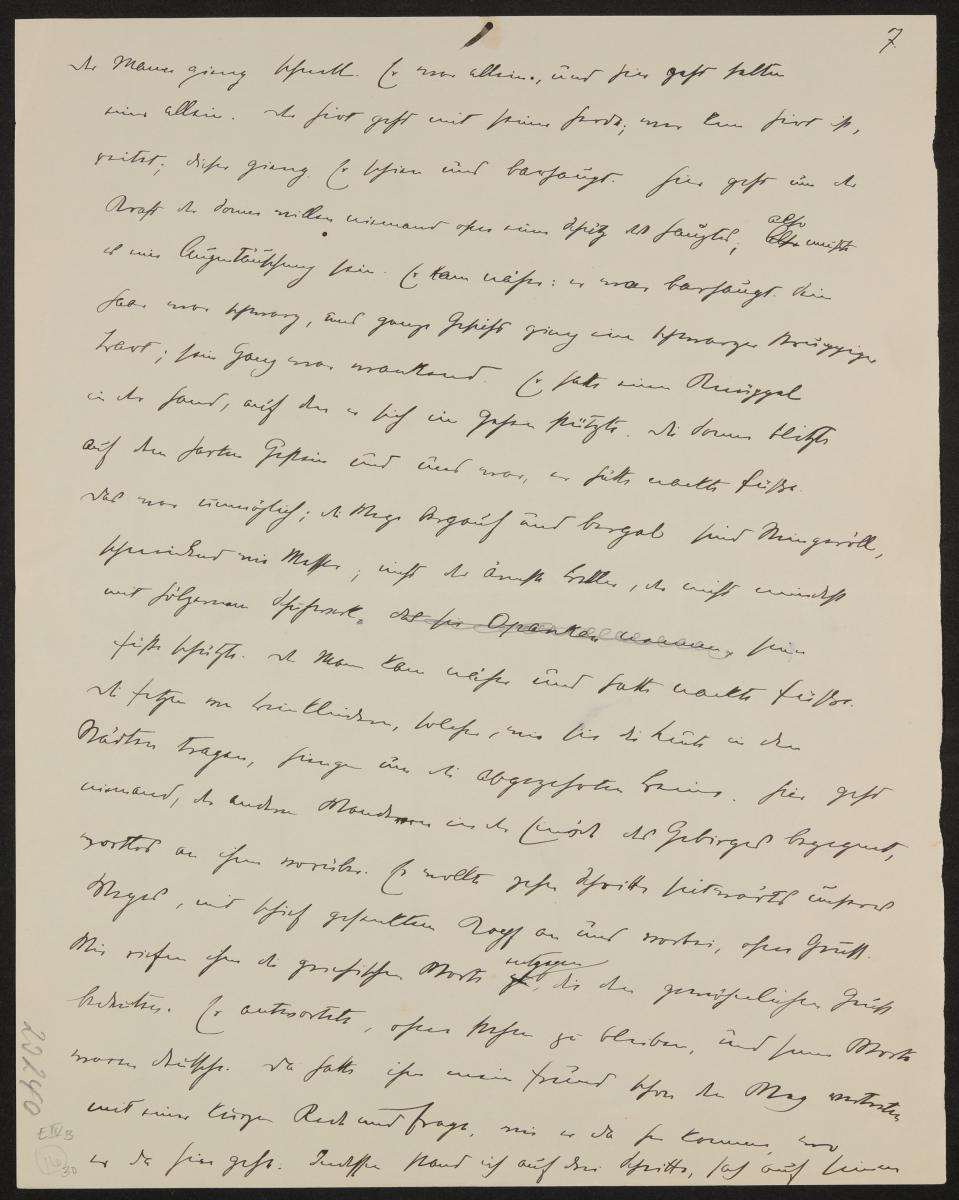 7.
der Mann gieng schnell. Er war allein, und hier geht selten
einer allein. der Hirt geht mit seiner Herde; wer kein Hirt ist,
reitet; dieser gieng. Er schien und barhaupt. hier geht um der
Kraft der Sonne willen niemand ohne einen Schutz des Hauptes; also mußte
es eine Augentäuschung sein. Er kam näher: er war barhaupt. Sein
Haar war schwarz, das ganze Gesicht gieng ein schwarzer struppiger
Bart; sein Gang war wankend. Er hatte einen Knüppel
in der Hand, auf den er sich im Gehen stützte. die Sonne blitzte
auf dem harten Gestein und uns war, er hätte nackte Füße.
das war unmöglich; die Wege bergauf und bergab sind Steingeröll,
schneidend wie Messer; nicht der ärmste Bettler, der nicht mindest
mit hölzernem Schuhwerk, das sie Opanken nennen, seine
Füße schützte. der Mann kam näher und hatte nackte Füße.
die Fetzen von Beinkleidern, solcher, wie sie die Leute in den
Städten tragen, hingen um die abgezehrten Beine. hier geht
niemand, der andern Wanderern in der Einöde des Gebirges begegnet,
wortlos an ihnen vorüber. Er wollte zehn Schritte seitwärts unseres
Weges, mit schief gesenktem Kopf an uns vorbei, ohne Gruß.
Wir riefen ihm die griechischen Worte entgegen, die den gewöhnlichen Gruß
bedeuten. Er antwortete, ohne stehen zu bleiben, und seine Worte
waren deutsche. da hatte ihm mein Freund schon den Weg vertreten
mit einer kurzen Rede und Frage, wie er da her komme, wo
er da hier gehe. Indessen stand ich auf drei Schritte, sah auf seinen
22240
EIVB
30